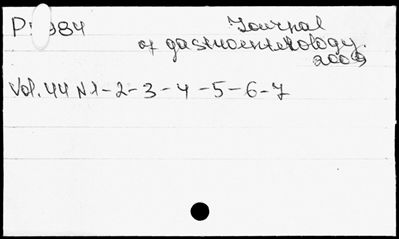 Journal
of gastroenterology.
2009
Vol. 44 N 1-2-3-4-5-6-7